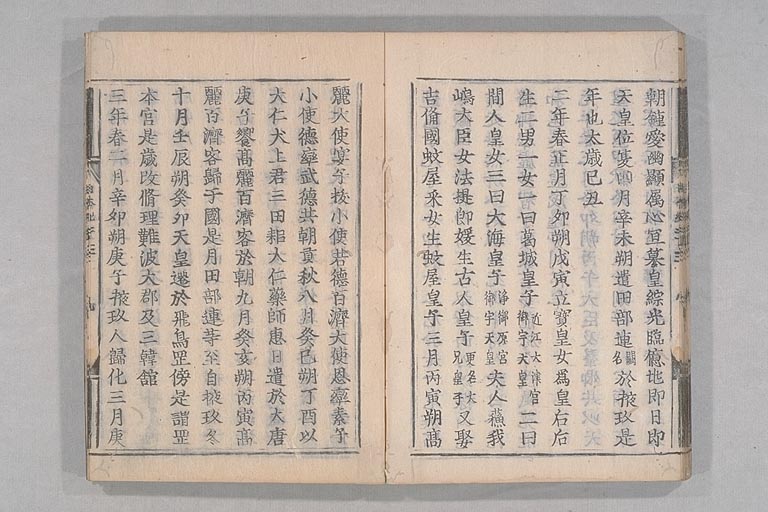 朝鍾愛幽顯屬心宜纂皇綜光臨億兆即日即
天皇位夏四月辛未朔遣田部連闕名於掖玖是
年也太歲己丑
二年春正月丁卯朔戊寅立寶皇女爲皇后后
生二男一女一曰葛城皇子近江大津宮御宇天皇二曰
間人皇女三曰大海皇子淨御原宮御宇天皇夫人蘓我
嶋大臣女法提郎媛生古人皇子更名大兄皇子又娶
吉備國蚊屋采女生蚊屋皇子三月丙寅朔高
麗大使宴子拔小使若德百濟大使恩率素子
小使德率武德共朝貢秋八月癸巳朔丁酉以
大仁犬上君三田耜大仁藥師惠日遣於大唐
庚子饗高麗百濟客於朝九月癸亥朔丙寅高
麗百濟客歸于國是月田部連等至自掖玖冬
十月壬辰朔癸卯天皇遷於飛鳥罡傍是謂罡
本宮是歲改脩理難波大郡及三韓館
三年春二月辛卯朔庚子掖玖人歸化三月庚